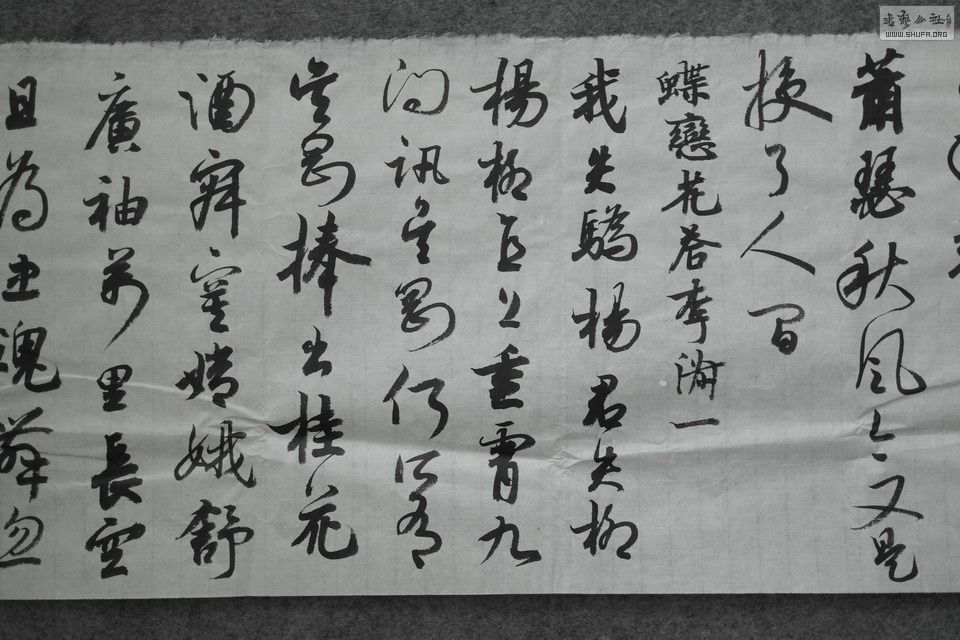 蕭瑟秋風今又是
換了人間
蝶戀花答李淑一
我失驕楊君失柳
楊柳直上重霄九
問訊吳剛何所有
吳剛捧出桂花
酒寂寞嫦娥舒
廣袖萬里長空
且為忠魂舞忽
書藝公社
WWW.SHUFA.ORG